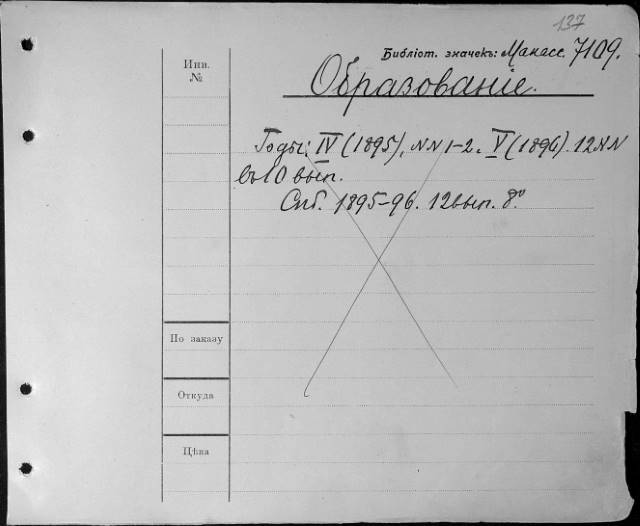 137
Библіот. значекъ: Макасс. 7109.
Образованіе.
Инв.
№
Годы: IV (1895), NN 1-2. V (1896). 12 NN
въ 10 вып.
Спб. 1895-96. 12 вып. 8º
По заказу
Откуда
Цѣна